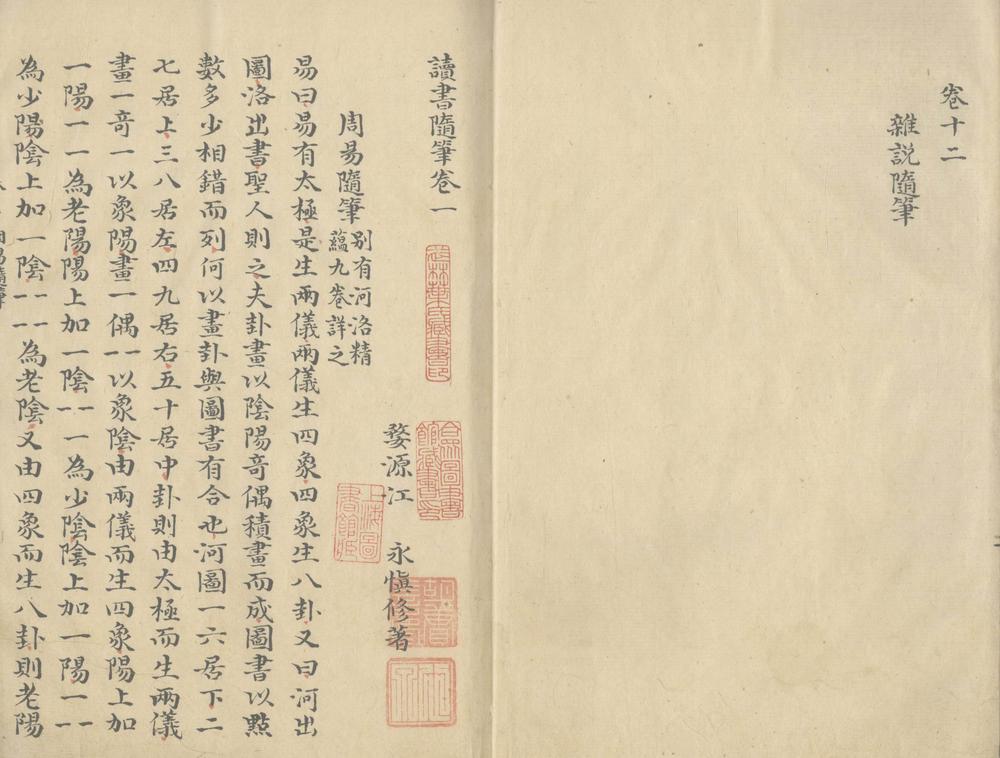 卷十二
雜説隨筆
讀書隨筆卷一
婺源江 永慎修著
周易隨筆
别有河洛精
藴九卷詳之
易曰易有太極是生兩儀兩儀生四象四象生八卦又曰河出
圖洛出書聖人則之夫卦畫以陰陽竒偶積畫而成圖書以㸃
數多少相錯而列何以畫卦與圖書有合也河圖一六居下二
七居上三八居左四九居右五十居中卦則由太極而生兩儀
畫一竒一以象陽畫一偶⚋以象陰由兩儀而生四象陽上加
一陽一一為老陽陽上加一陰⚋一為少陰陰上加一陽一⚋
為少陽陰上加一陰⚋⚋為老陰又由四象而生八卦則老陽
上海圖書館藏